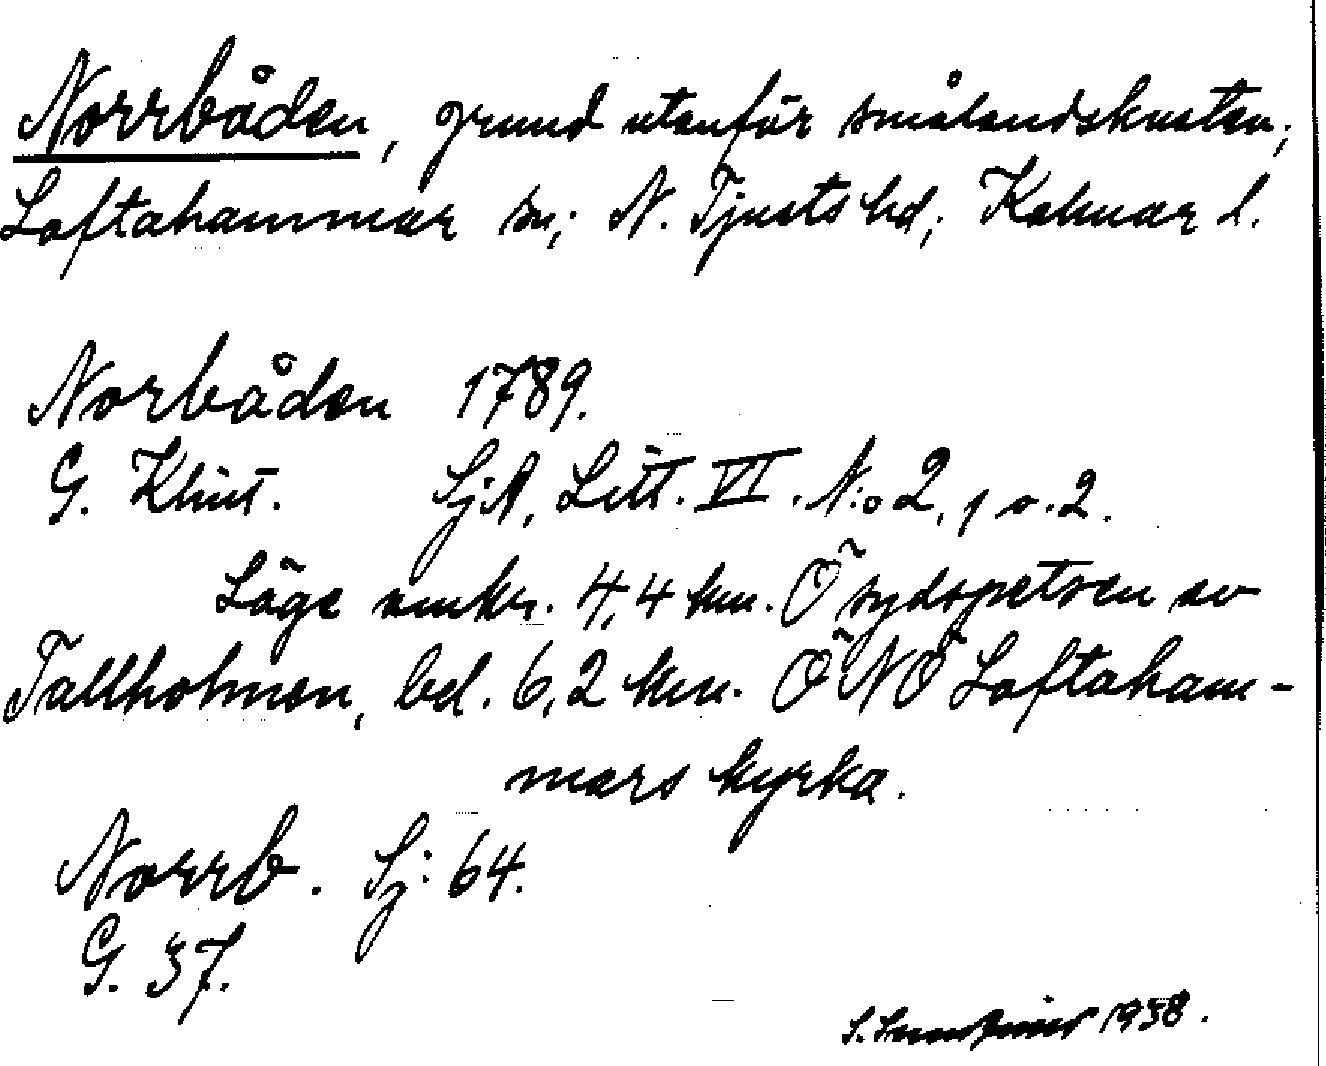 Norrbåden, grund utanför smålandskusten;
Loftahammar sn; N. Tjusts hd; Kalmar l.
Norbåden 1789.
G. Klint. SjA, Litt. VI. N:o 2, 1 o. 2.
Läge omkr. 4,4 km. Ö sydspetsen av
Tallholmen, bel. 6,2 km. ÖNÖ Loftaham-
mars kyrka.
Norrb. Sj: 64.
G. 37.
S. 1938.